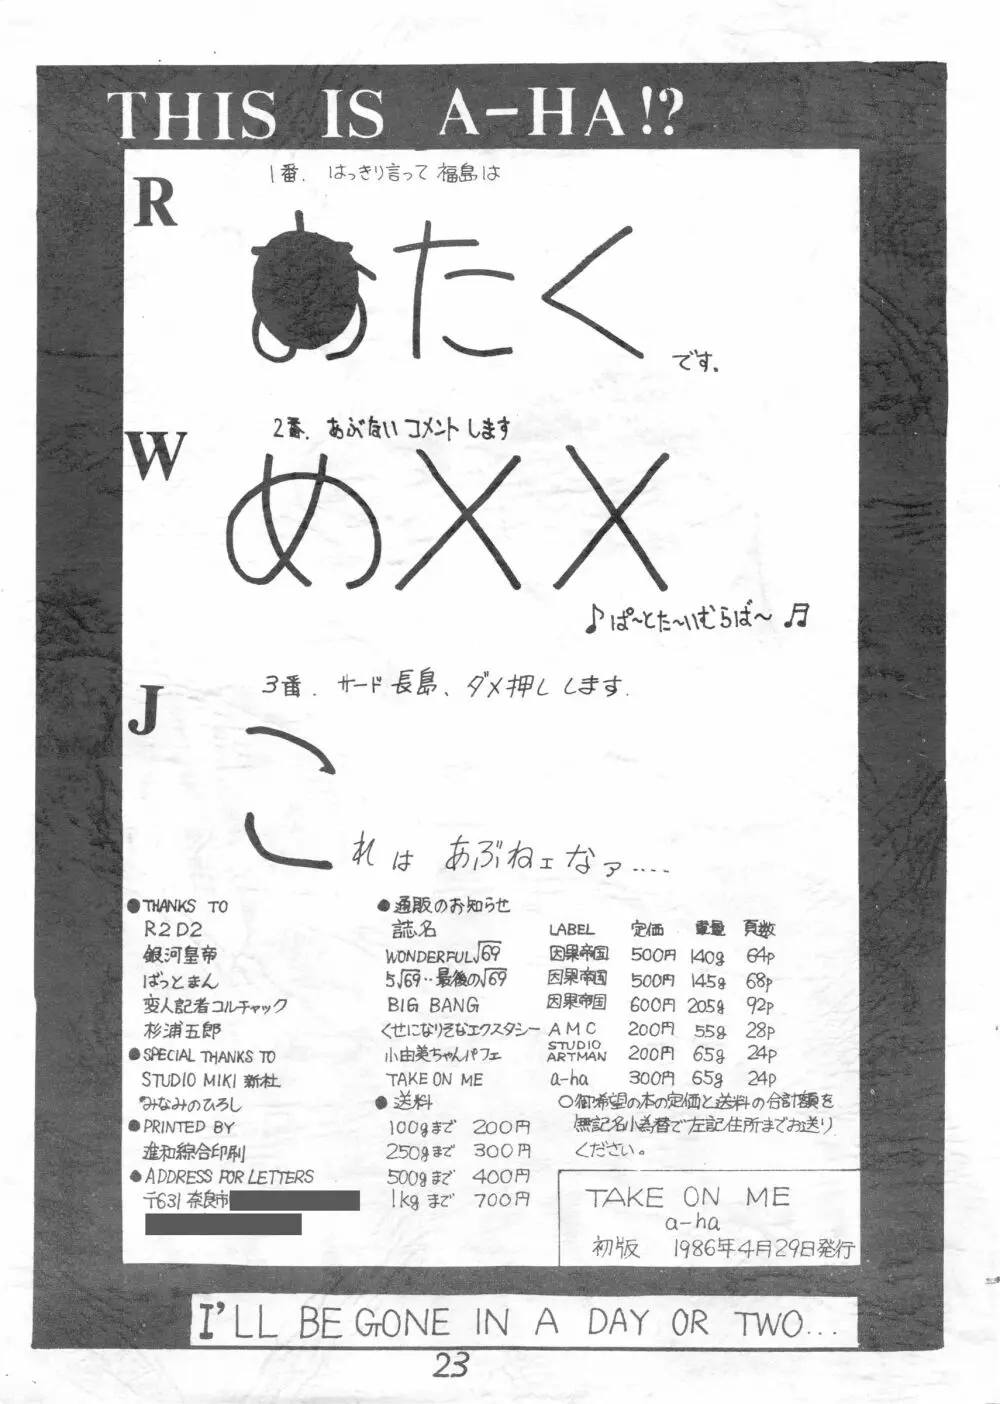 THIS IS A-HA!?
R
1番. はっきり言って 福島は
おたく
です。
W
2番. あぶない コメント します
め××
♪ ぱ〜とた〜いむらば〜 ♬
J
3番. サード 長島、ダメ押し します.
こ
れは あぶねェ なァ....
●THANKS TO
R2D2
銀河皇帝
ばっとまん
変人記者コルチャック
杉浦五郎
●SPECIAL THANKS TO
STUDIO MIKI 新社
みなみのひろし
●PRINTED BY
進和綜合印刷
●ADDRESS FOR LETTERS
〒631 奈良市
●通販のお知らせ
誌名 LABEL 定価 重量 頁数
WONDERFUL√69 因果帝国 500円 140g 64p
5√69‥最後の√69 因果帝国 500円 145g 68p
BIG BANG 因果帝国 600円 205g 92p
くせになりそなエクスタシー AMC 200円 55g 28p
小由美ちゃんパフェ STUDIO ARTMAN 200円 65g 24p
TAKE ON ME a-ha 300円 65g 24p
●送料
100gまで 200円
250gまで 300円
500gまで 400円
1kgまで 700円
○御希望の本の定価と送料の合計額を
無記名小為替で左記住所までお送り
ください。
TAKE ON ME
a-ha
初版 1986年4月29日発行
I'LL BE GONE IN A DAY OR TWO...
23